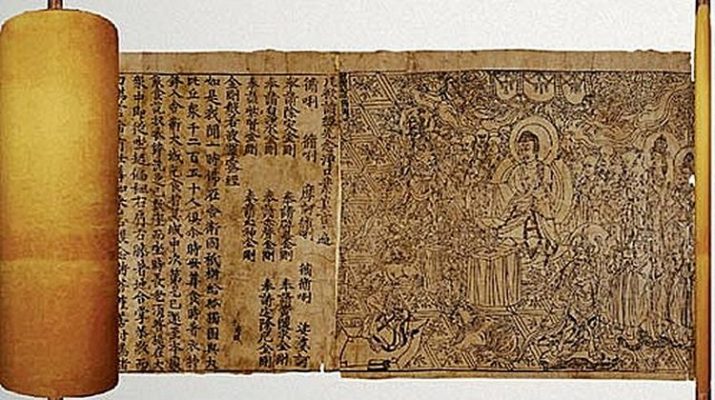 凡欲讀經先念淨口業真言一遍
脩唎 脩唎 摩訶脩唎 脩脩唎 娑婆訶
奉請除灾金剛 奉請辟毒金剛
奉請白淨水金剛 奉請赤聲金剛 奉請定除厄金剛
奉請紫賢金剛 奉請大神金剛
金剛般若波羅蜜經
如是我聞一時佛在舍衛國祇樹給孤獨園與大
比丘衆千二百五十人俱尒時世尊食時著衣持
鉢入舍衛大城乞食於其城中次第乞已還至本處
飯食訖收衣鉢洗足已敷座而坐時長老須菩提在大
衆中即從座起偏袒右肩右膝著地合掌恭敬而